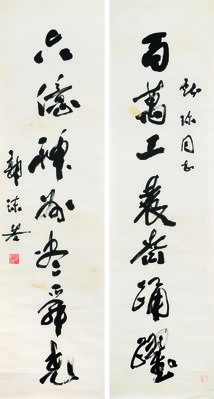 珍同志
百萬工農齊踊躍
六億神州尽舜堯
郭沫若